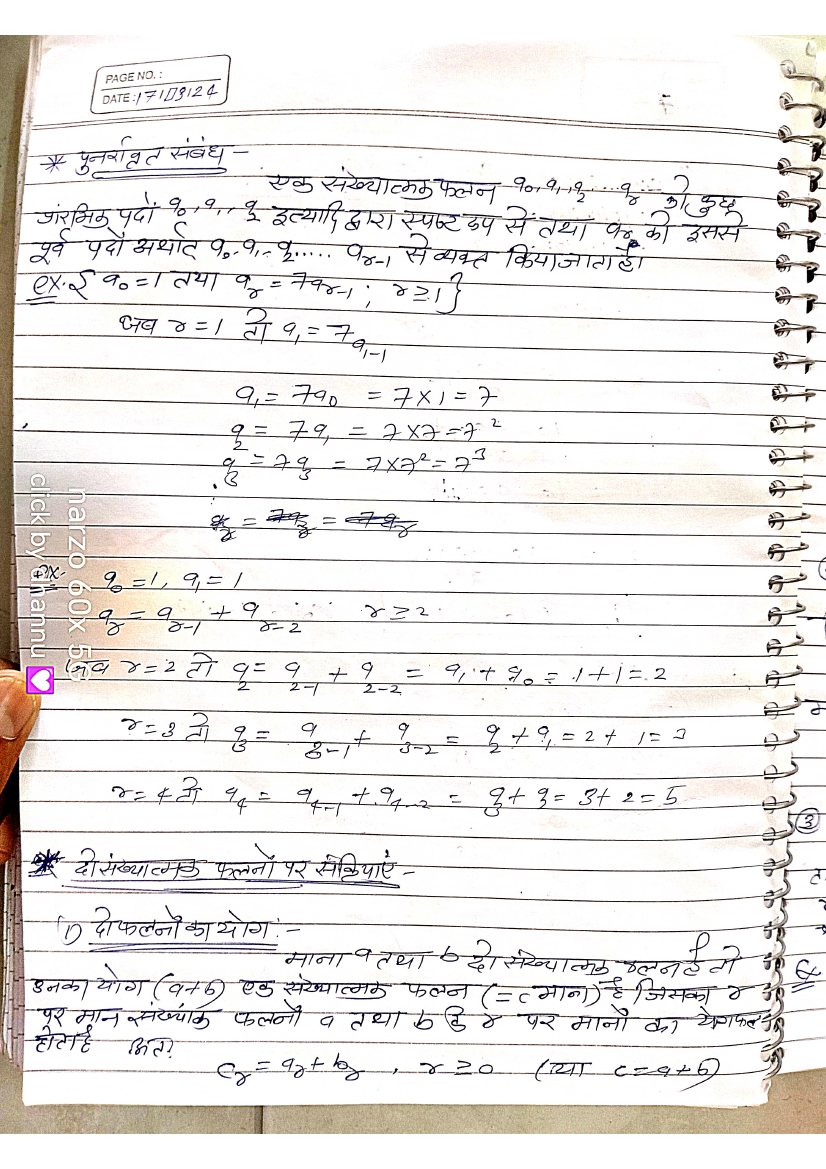 PAGE NO. :
DATE : 17/09/24
* पुनरावृत संबंध –
एक संख्यात्मक फलन a₀, a₁, a₂ ..... aᵣ को कुछ
प्रारंभिक पदों a₀, a₁, a₂ इत्यादि द्वारा स्पष्ट रूप से तथा aᵣ को इससे
पूर्व पदों अर्थात a₀, a₁, a₂ ..... aᵣ₋₁ से व्यक्त किया जाता है।
ex. { a₀ = 1 तथा aᵣ = 7aᵣ₋₁ ; r ≥ 1 }
जब r = 1 तो a₁ = 7 a₁₋₁
a₁ = 7a₀ = 7 × 1 = 7
a₂ = 7a₁ = 7 × 7 = 7²
a₃ = 7a₃ = 7 × 7² = 7³
ex- a₀ = 1, a₁ = 1
aᵣ = aᵣ₋₁ + aᵣ₋₂ r ≥ 2
जब r = 2 तो a₂ = a₂₋₁ + a₂₋₂ = a₁ + a₀ = 1 + 1 = 2
r = 3 तो a₃ = a₃₋₁ + a₃₋₂ = a₂ + a₁ = 2 + 1 = 3
r = 4 तो a₄ = a₄₋₁ + a₄₋₂ = a₃ + a₂ = 3 + 2 = 5
* दो संख्यात्मक फलनों पर संक्रियाएं –
1) दो फलनों का योग :–
माना a तथा b दो संख्यात्मक फलन है तो
उनका योग (a+b) एक संख्यात्मक फलन (= c माना) है जिसका r
पर मान संख्यांक फलनों a तथा b के r पर मानों का योगफल
होता है अतः
cᵣ = aᵣ + bᵣ , r ≥ 0 (या c = a + b)
narzo 60x 5G
click by dhannu
③
Q